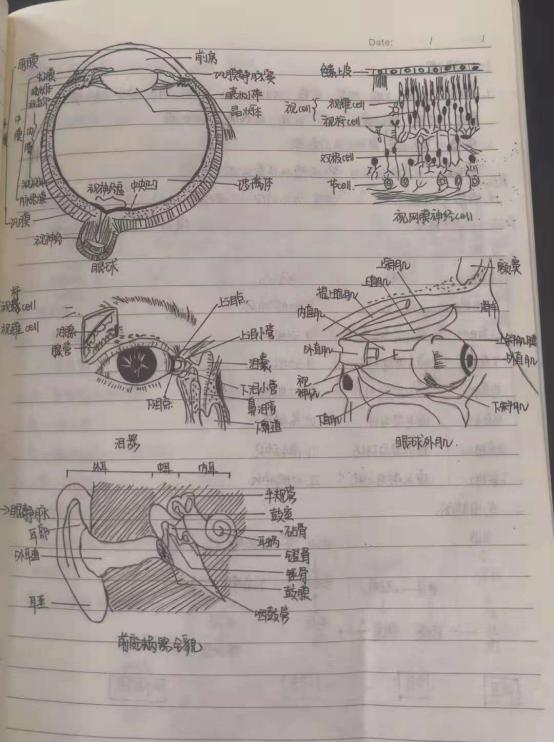 Date: / /
角膜
前房
虹膜
巩膜静脉窦
睫状体
晶状体
玻璃体
中央凹
视神经盘
脉络膜
巩膜
视神经
眼球
色素上皮
视cell
视锥cell
视杆cell
双极cell
节cell
视网膜神经cell.
视锥cell
泪腺
腺管
上泪点
上泪小管
泪囊
下泪小管
鼻泪管
下鼻道
下泪点
泪器
上斜肌
上直肌
提上睑肌
内直肌
额窦
滑车
上斜肌腱
外直肌
外直肌
视神经
下直肌
下斜肌
眼球外肌.
外耳
中耳
内耳
耳廓
外耳道
耳垂
半规管
鼓室
砧骨
耳蜗
镫骨
锤骨
鼓膜
咽鼓管
前庭蜗器全貌